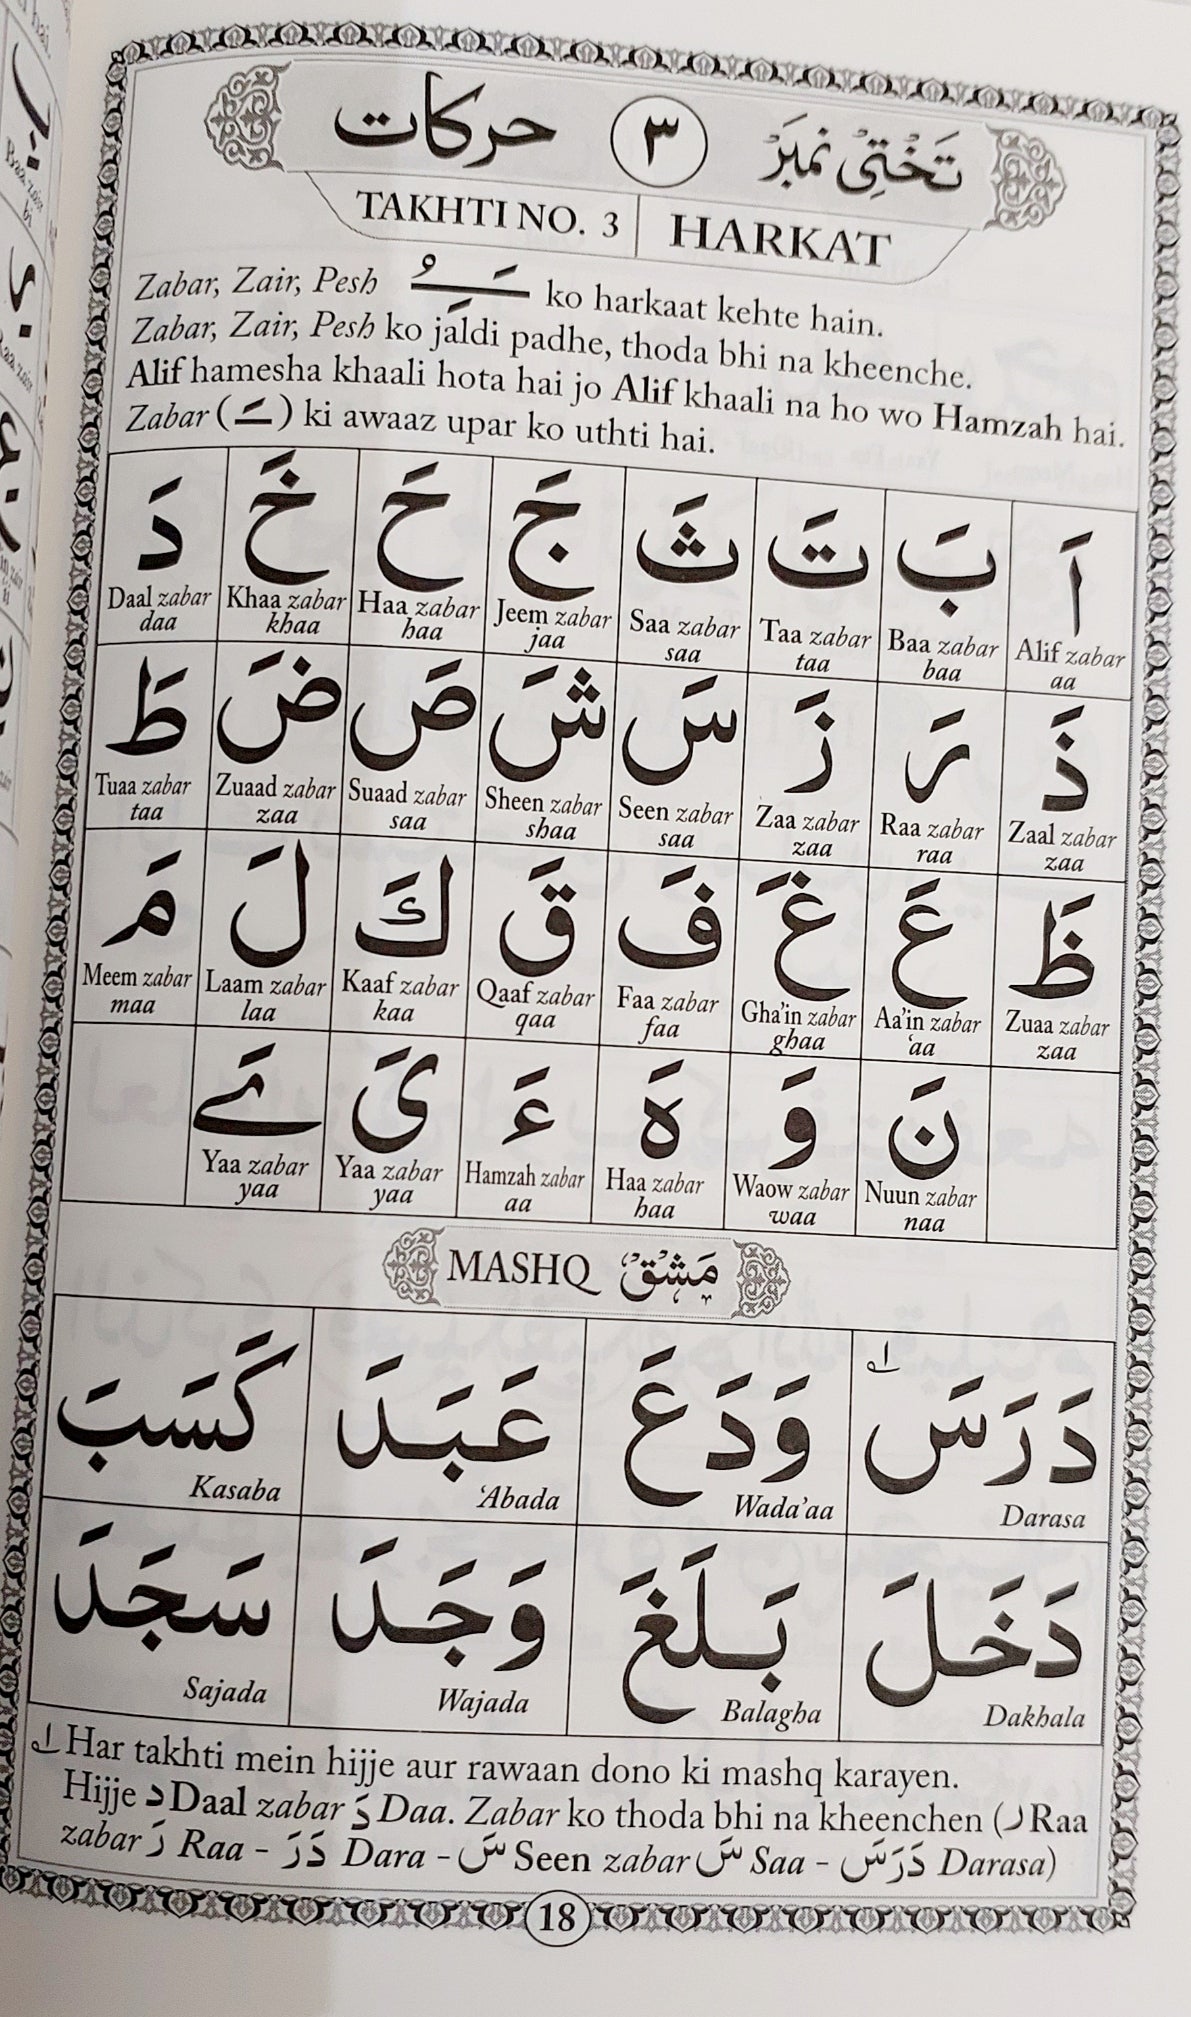 تَخْتِیْ نمبَرْ ٣ حرکات
TAKHTI NO. 3 | HARKAT
Zabar, Zair, Pesh ـَـِـُ ko harkaat kehte hain.
Zabar, Zair, Pesh ko jaldi padhe, thoda bhi na kheenche.
Alif hamesha khaali hota hai jo Alif khaali na ho wo Hamzah hai.
Zabar (ـَ) ki awaaz upar ko uthti hai.
اَ بَ تَ ثَ جَ حَ خَ دَ
Daal zabar Khaa zabar Haa zabar Jeem zabar Saa zabar Taa zabar Baa zabar Alif zabar
daa khaa haa jaa saa taa baa aa
ذَ رَ زَ سَ شَ صَ ضَ طَ
Tuaa zabar Zuaad zabar Suaad zabar Sheen zabar Seen zabar Zaa zabar Raa zabar Zaal zabar
taa zaa saa shaa saa zaa raa zaa
ظَ عَ غَ فَ قَ كَ لَ مَ
Meem zabar Laam zabar Kaaf zabar Qaaf zabar Faa zabar Gha'in zabar Aa'in zabar Zuaa zabar
maa laa kaa qaa faa ghaa 'aa zaa
نَ وَ هَ ءَ یَ ےَ
Yaa zabar Yaa zabar Hamzah zabar Haa zabar Waow zabar Nuun zabar
yaa yaa aa haa waa naa
MASHQ مَشْقْ
دَرَسَ ؂۱ وَدَعَ عَبَدَ كَسَبَ
Kasaba 'Abada Wada'aa Darasa
دَخَلَ بَلَغَ وَجَدَ سَجَدَ
Sajada Wajada Balagha Dakhala
؂۱ Har takhti mein hijje aur rawaan dono ki mashq karayen.
Hijje د Daal zabar دَ Daa. Zabar ko thoda bhi na kheenchen (ر Raa
zabar رَ Raa - دَرَ Dara - سَ Seen zabar سَ Saa - دَرَسَ Darasa)
18